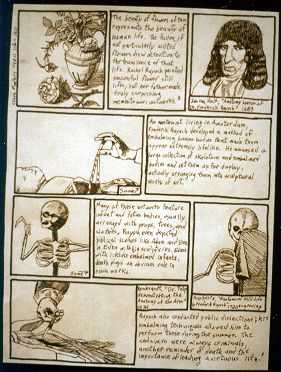 The beauty of flowers often
represents the beauty of
human life. The fallen, if
not particularly wilted
flowers drew attention to
the transience of that
life. Rachel Ruysch painted
successful flower still
lifes, but her father made
truly surprising
memento mori artworks.
"Anatomy Lesson of
Dr. Frederick Ruysch" 1683
An anatomist living in Amsterdam,
Frederick Ruysch developed a method of
embalming human bodies that made them
appear extremely lifelike. He amassed a
large collection of skeletons and embalmed
bodies and set them up for display -
actually arranging them into sculptural
works of art.
Same
Many of these artworks feature
infant and fetus bodies, usually
arranged with props, trees, and
Ruysch even depicted
biblical scenes like Adam and Eve
in Eden with
skeletons
with little embalmed infants,
death plays an obvious role in
own works.
Same
Rembrandt, "Dr. Tulp
demonstrating the
Anatomy of the Arm"
Ruysch also conducted public dissections; his
embalming techniques allowed him to
perform these during the summer. The
cadavers were always criminals,
another reminder of death and the
importance of leading a virtuous life!